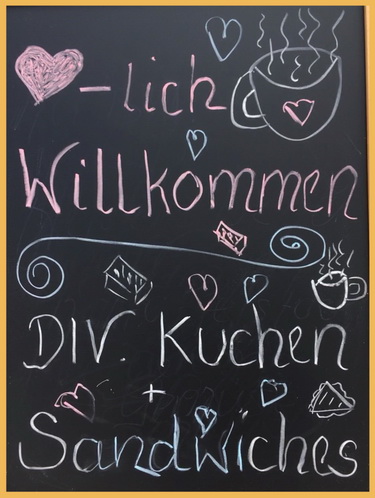 -lich
Willkommen
DIV. Kuchen
+
Sandwiches